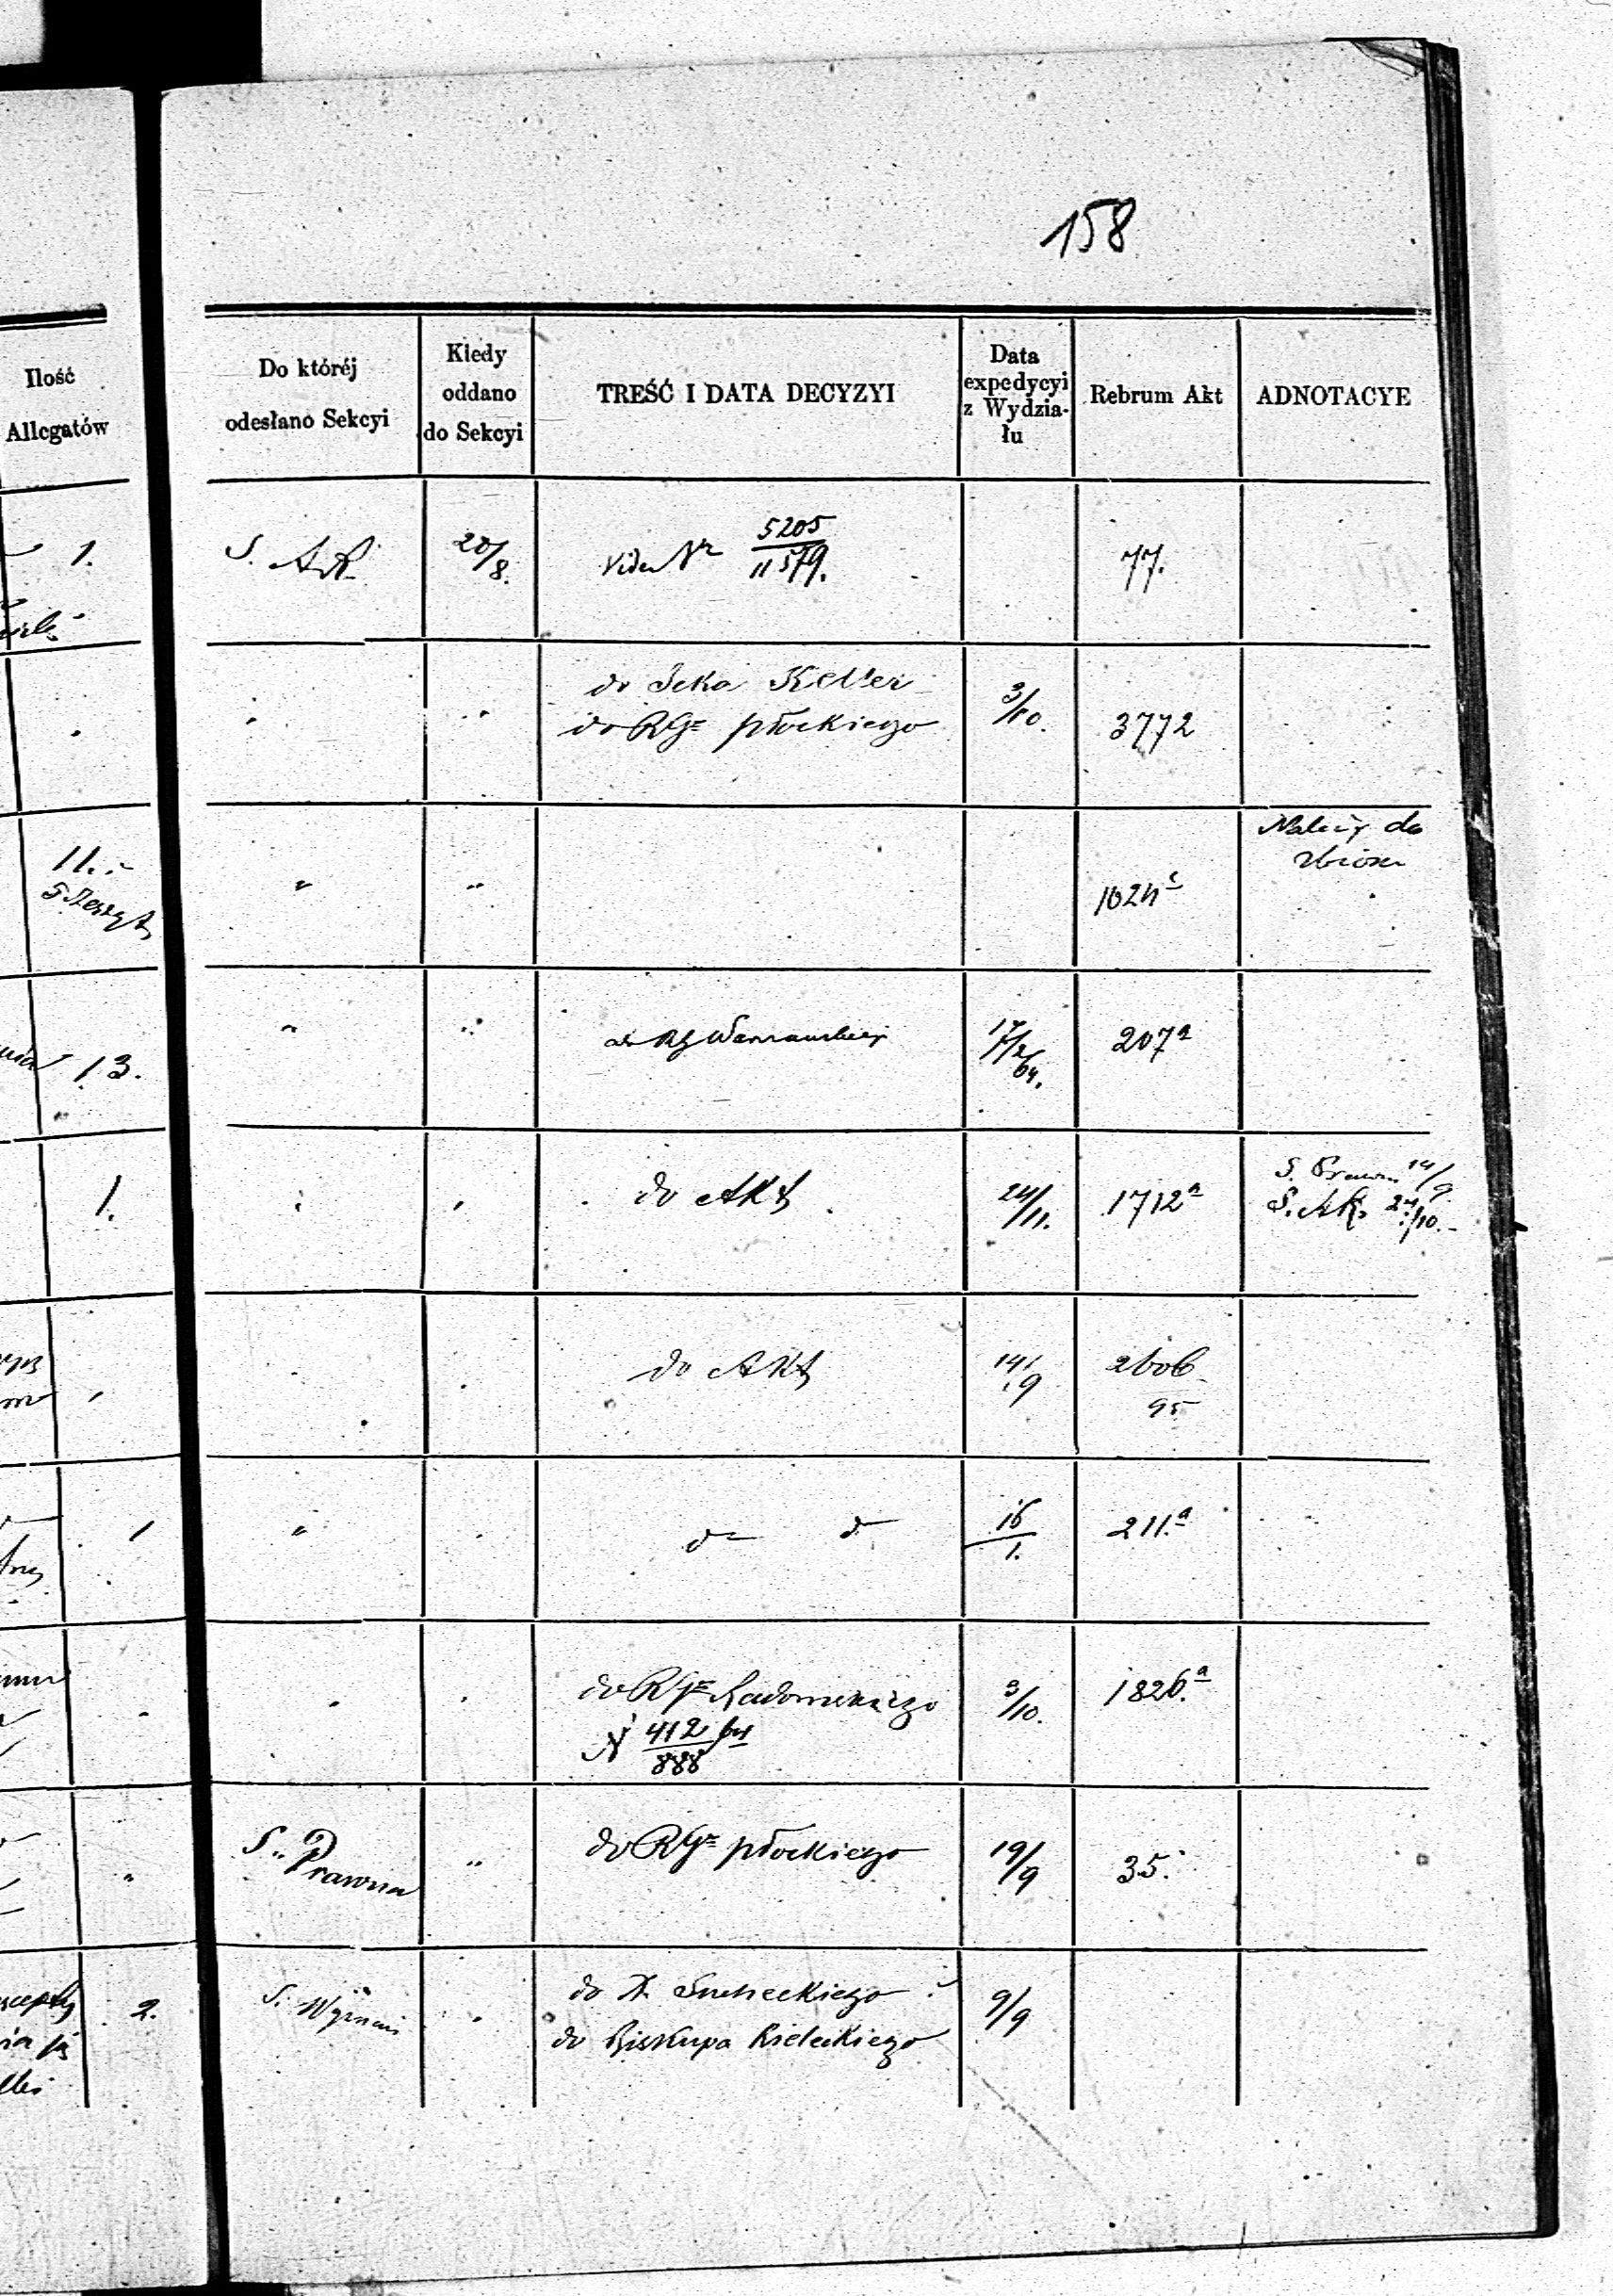 158
Ilość
Allegatów
Do któréj
odesłano Sekcyi
Kiedy
oddano
do Sekcyi
TREŚĆ I DATA DECYZYI
Data
expedycyi
z Wydzia-
łu
Rebrum Akt
ADNOTACYE
1. S. AK. 20/8. Vide Nr 5205/11579. 77.
do Icka Keller
do RGo płockiego 3/10. 3772
11. " " 1624c Należy do
5 Zeszyt zbioru
13. " " do RG Warszawskiego 17/2/64. 207a
1. do Akt 24/11. 1712a S. Prawn. 14/9
S. AK. 24/10.
do Akt 14/9 2606
95
1 " do do 16/1. 211.a
do RGo Radomskiego 3/10. 1826.a
N 412/888 64
" S. Prawna " do RGo płockiego 19/9 35.
2. S. Wyznań do X. Sucheckiego 9/9
do Biskupa Kieleckiego